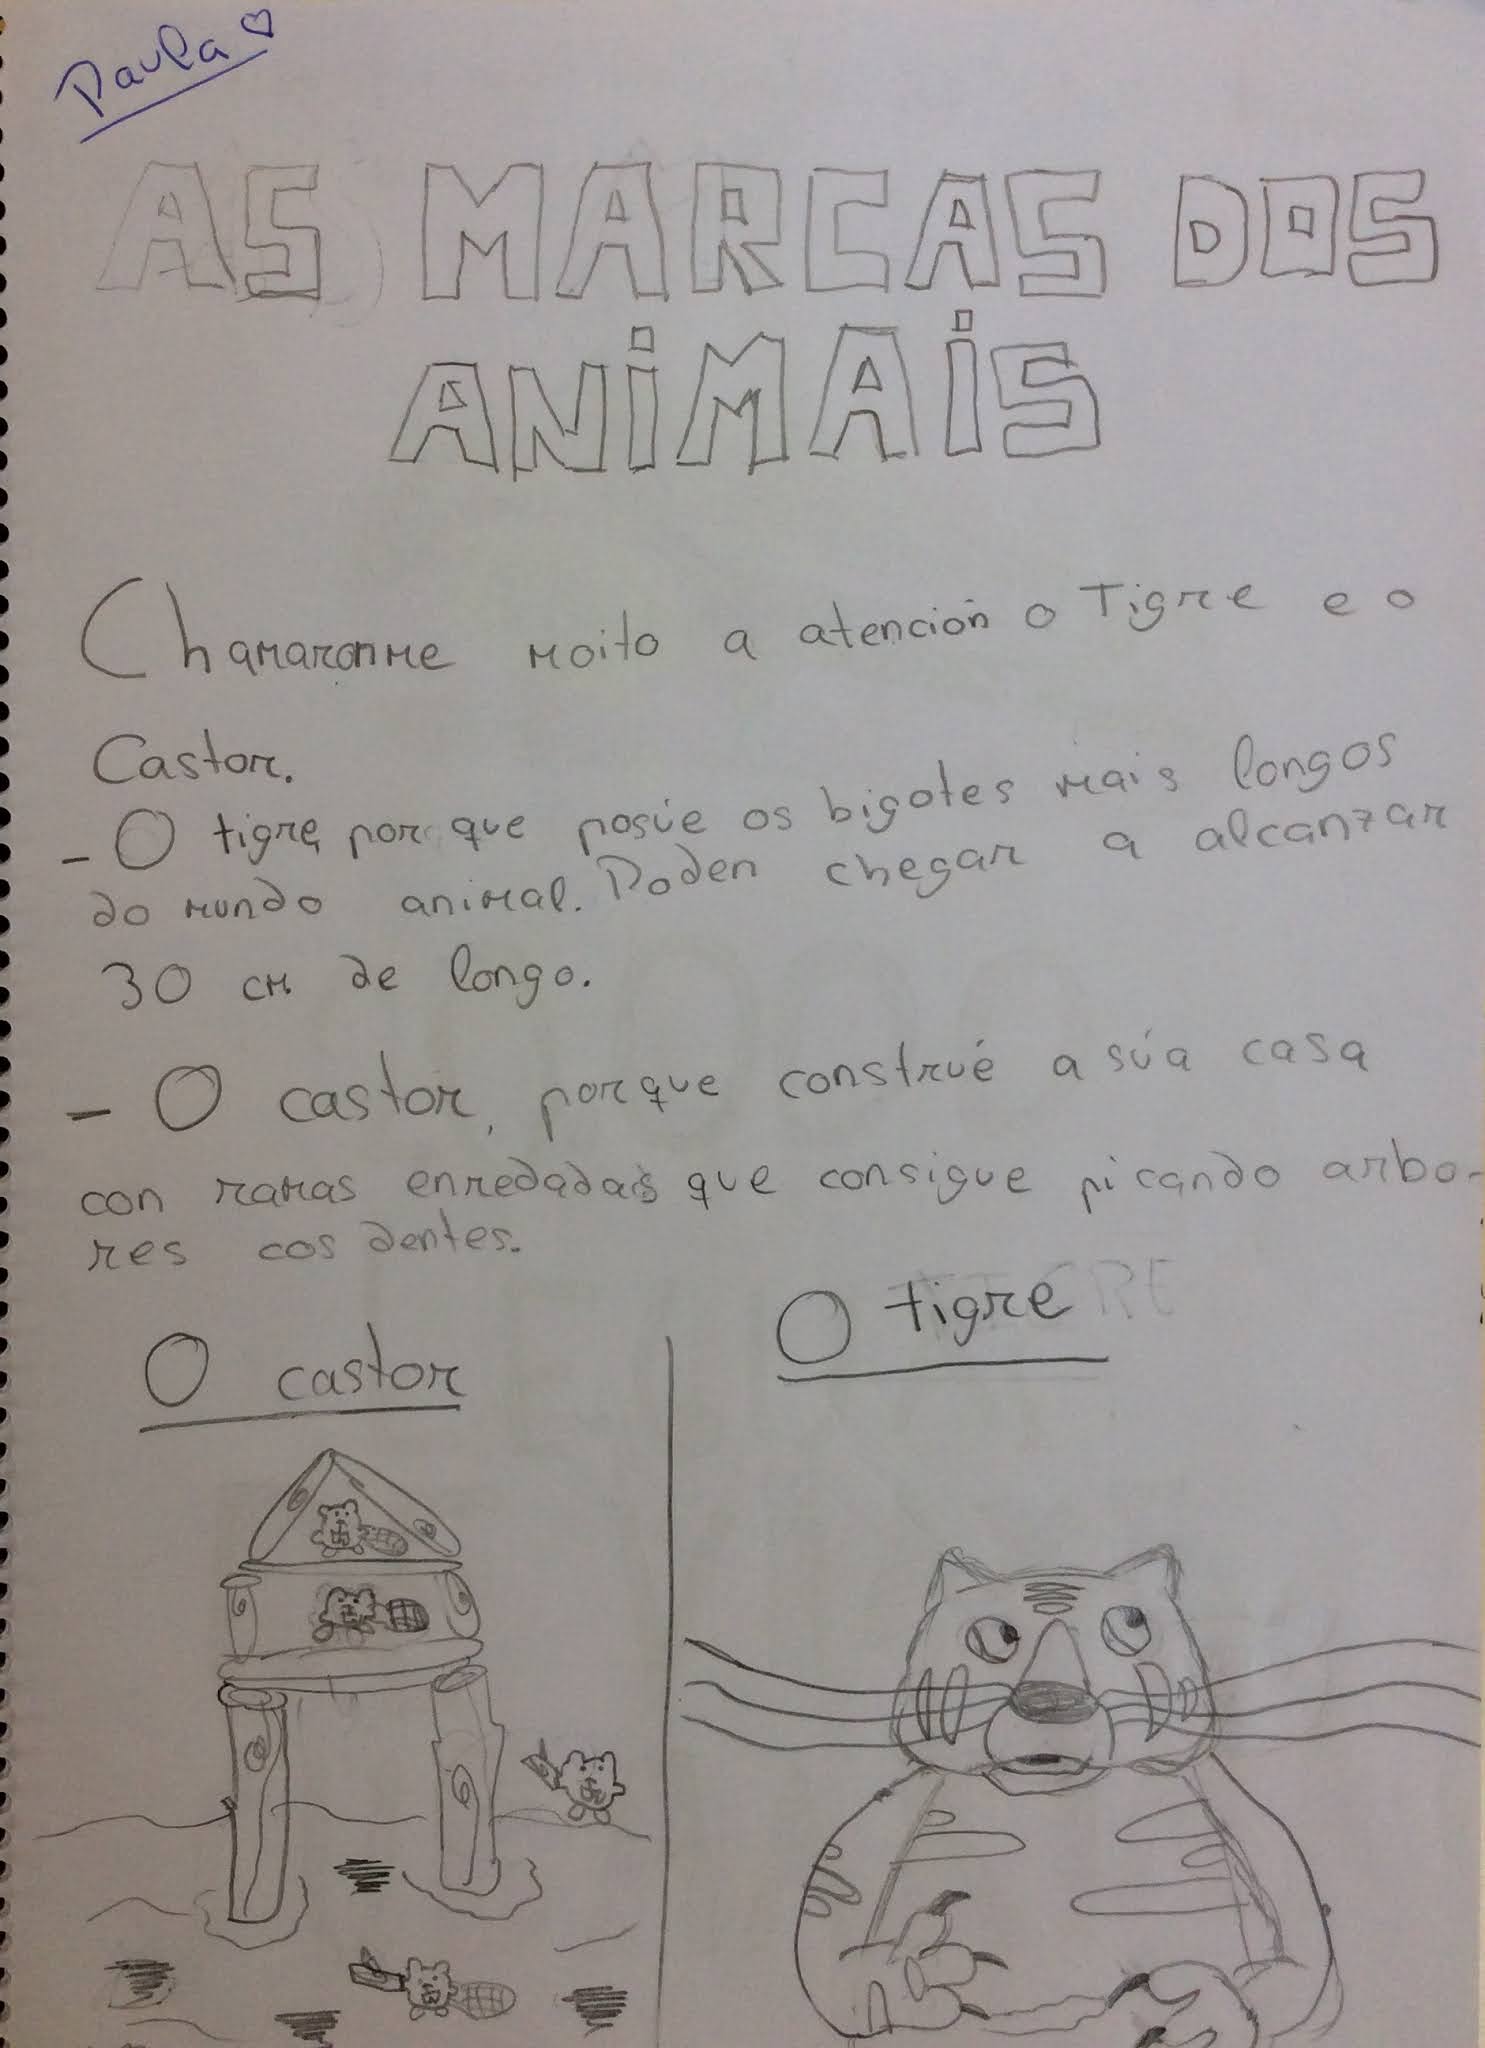 Paula
AS MARCAS DOS
ANIMAIS
Chamaronme moito a atención o Tigre e o
Castor.
- O tigre, por que posúe os bigotes mais longos
do mundo animal. Poden chegar a alcanzar
30 cm de longo.
- O castor, porque construé a súa casa
con ramas enredadas que consigue picando arbo-
res cos dentes.
O castor
O tigre